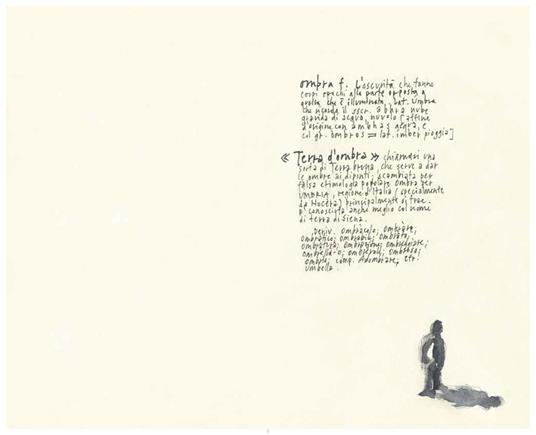 ombra f. L'oscurità che fanno
corpi opachi alla parte opposta a
quella che è illuminata, Lat. Umbra
che ricorda il sscr. abhra nube
gravida di acqua, nuvolo (affine
d'origine con ambhas acqua, e
col gr. ombros = lat. imber pioggia]
« Terra d'ombra » chiamasi una
sorta di Terra bruna, che serve a dar
le ombre ai dipinti; scambiata per
falsa etimologia popolare Ombra per
UMBRIA, regione d'Italia (specialmente
da Nocera) principalmente si trae.
E' conosciuta anche meglio col nome
di terra di Siena.
Deriv. Ombràcolo; ombràre;
ombràtico; ombràbile; ombrato;
ombratura; ombrazione; ombreggiare;
ombrella-o; ombroso;
comp. Adombrare, cfr.
umbella.